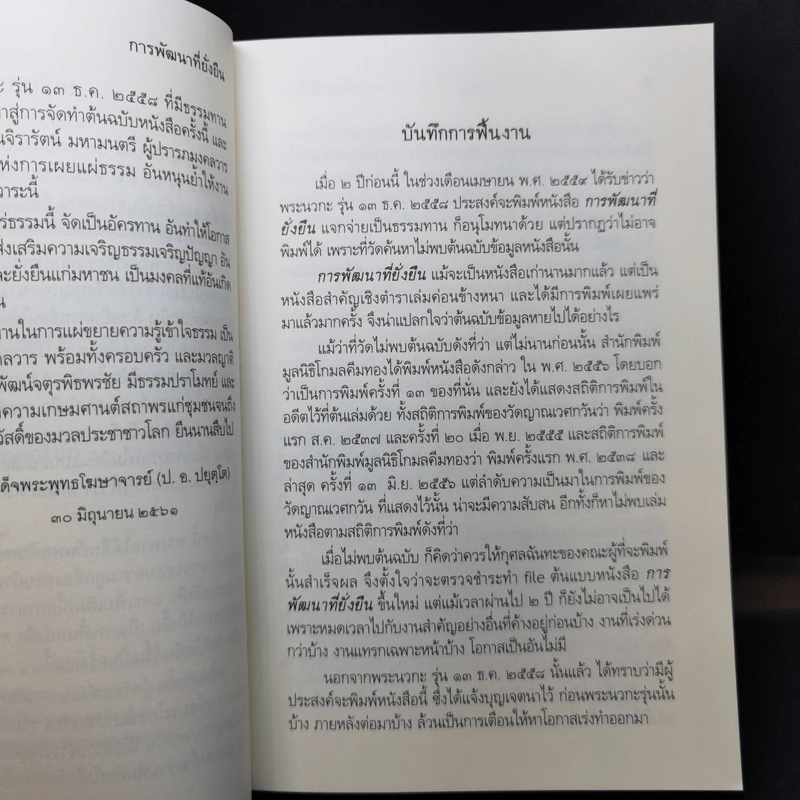 การพัฒนาที่ยั่งยืน
ะ รุ่น ๑๓ ธ.ค. ๒๕๕๘ ที่มีธรรมทาน
าสู่การจัดทำต้นฉบับหนังสือครั้งนี้ และ
นจิรารัตน์ มหามนตรี ผู้ปรารภมงคลวาร
ห่งการเผยแผ่ธรรม อันหนุนย้ำให้งาน
วาระนี้
ร่ธรรมนี้ จัดเป็นอัครทาน อันทำให้โอกาส
ส่งเสริมความเจริญธรรมเจริญปัญญา อัน
ละยั่งยืนแก่มหาชน เป็นมงคลที่แท้อันเกิด
น
านในการแผ่ขยายความรู้เข้าใจธรรม เป็น
คลวาร พร้อมทั้งครอบครัว และมวลญาติ
พัฒน์จตุรพิธพรชัย มีธรรมปราโมทย์ และ
ดความเกษมศานต์สถาพรแก่ชุมชนจนถึง
วัสดิ์ของมวลประชาชาวโลก ยืนนานสืบไป
ด็จพระพุทธโฆษาจารย์ (ป. อ. ปยุตฺโต)
๓๐ มิถุนายน ๒๕๖๑
บันทึกการฟื้นงาน
เมื่อ ๒ ปีก่อนนี้ ในช่วงเดือนเมษายน พ.ศ. ๒๕๕๙ ได้รับข่าวว่า
พระนวกะ รุ่น ๑๓ ธ.ค. ๒๕๕๘ ประสงค์จะพิมพ์หนังสือ การพัฒนาที่
ยั่งยืน แจกจ่ายเป็นธรรมทาน ก็อนุโมทนาด้วย แต่ปรากฏว่าไม่อาจ
พิมพ์ได้ เพราะที่วัดค้นหาไม่พบต้นฉบับข้อมูลหนังสือนั้น
การพัฒนาที่ยั่งยืน แม้จะเป็นหนังสือเก่านานมากแล้ว แต่เป็น
หนังสือสำคัญเชิงตำราเล่มค่อนข้างหนา และได้มีการพิมพ์เผยแพร่
มาแล้วมากครั้ง จึงน่าแปลกใจว่าต้นฉบับข้อมูลหายไปได้อย่างไร
แม้ว่าที่วัดไม่พบต้นฉบับดังที่ว่า แต่ไม่นานก่อนนั้น สำนักพิมพ์
มูลนิธิโกมลคีมทองได้พิมพ์หนังสือดังกล่าว ใน พ.ศ. ๒๕๕๖ โดยบอก
ว่าเป็นการพิมพ์ครั้งที่ ๑๓ ของที่นั่น และยังได้แสดงสถิติการพิมพ์ใน
อดีตไว้ที่ต้นเล่มด้วย ทั้งสถิติการพิมพ์ของวัดญาณเวศกวันว่า พิมพ์ครั้ง
แรก ส.ค. ๒๕๓๗ และครั้งที่ ๒๐ เมื่อ พ.ย. ๒๕๕๕ และสถิติการพิมพ์
ของสำนักพิมพ์มูลนิธิโกมลคีมทองว่า พิมพ์ครั้งแรก พ.ศ. ๒๕๓๘ และ
ล่าสุด ครั้งที่ ๑๓ มิ.ย. ๒๕๕๖ แต่ลำดับความเป็นมาในการพิมพ์ของ
วัดญาณเวศกวัน ที่แสดงไว้นั้น น่าจะมีความสับสน อีกทั้งก็หาไม่พบเล่ม
หนังสือตามสถิติการพิมพ์ดังที่ว่า
เมื่อไม่พบต้นฉบับ ก็คิดว่าควรให้กุศลฉันทะของคณะผู้ที่จะพิมพ์
นั้นสำเร็จผล จึงตั้งใจว่าจะตรวจชำระทำ file ต้นแบบหนังสือ การ
พัฒนาที่ยั่งยืน ขึ้นใหม่ แต่แม้เวลาผ่านไป ๒ ปี ก็ยังไม่อาจเป็นไปได้
เพราะหมดเวลาไปกับงานสำคัญอย่างอื่นที่ค้างอยู่ก่อนบ้าง งานที่เร่งด่วน
กว่าบ้าง งานแทรกเฉพาะหน้าบ้าง โอกาสเป็นอันไม่มี
นอกจากพระนวกะ รุ่น ๑๓ ธ.ค. ๒๕๕๘ นั้นแล้ว ได้ทราบว่ามีผู้
ประสงค์จะพิมพ์หนังสือนี้ ซึ่งได้แจ้งบุญเจตนาไว้ ก่อนพระนวกะรุ่นนั้น
บ้าง ภายหลังต่อมาบ้าง ล้วนเป็นการเตือนให้หาโอกาสเร่งทำออกมา